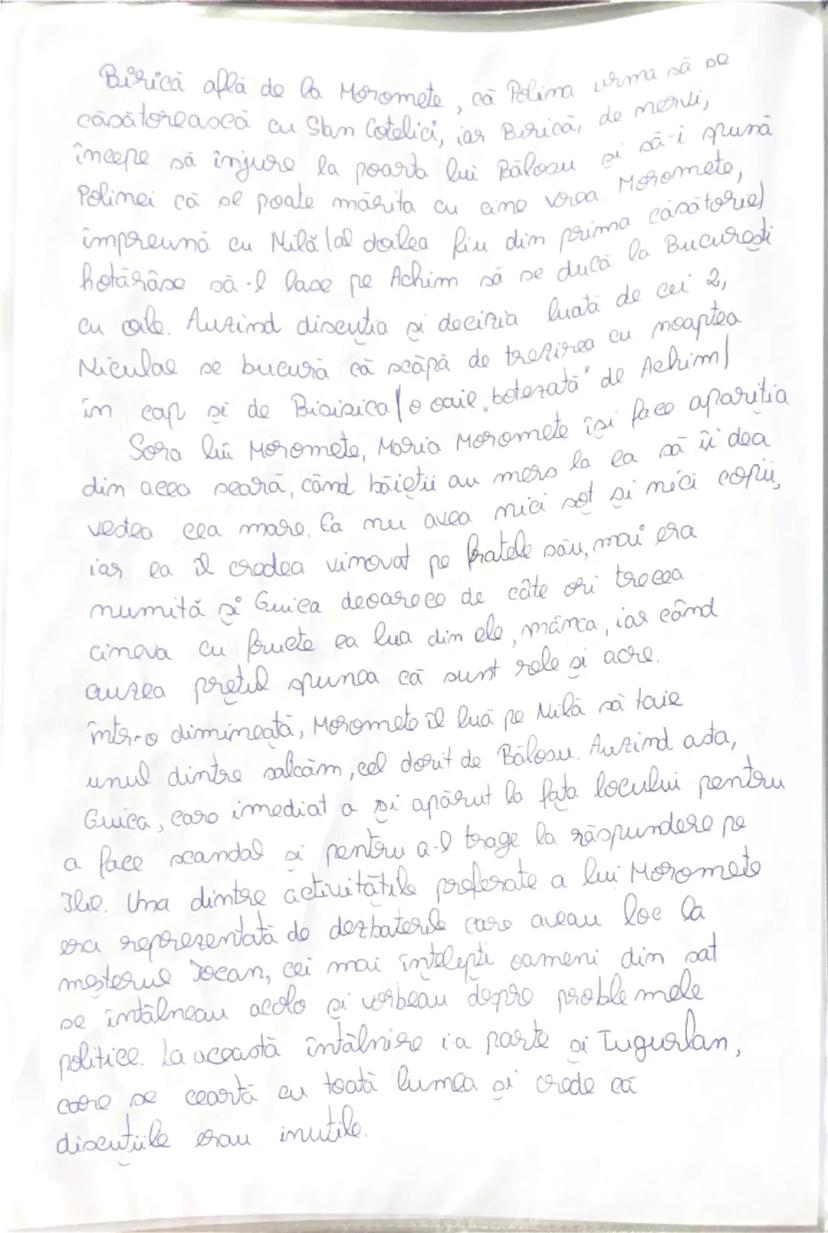 Birică află de la Moromete, că Polina urma să se
căsătorească cu Stan Cotelici, iar Birică, de nervi,
începe să înjure la poarta lui Bălosu și să-i spună
Polinei că se poate mărita cu cine vrea. Moromete,
împreună cu Nilă (al doilea fiu din prima căsătorie)
hotărăsc să-l lase pe Achim să se ducă la București
cu oile. Auzind discuția și decizia luată de cei 2,
Niculae se bucură că scăpă de trezirea cu noaptea
în cap și de Bisisica (o oaie „botezată" de Achim)
Sora lui Moromete, Maria Moromete își face apariția
din acea seară, când băieții au mers la ea să îi dea
vedea cea mare. Ea nu avea nici soț și nici copii,
iar ea îl credea vinovat pe fratele său, mai era
numită și Guica deoarece de câte ori trecea
cineva cu fructe ea lua din ele, mânca, iar când
auzea prețul spunea că sunt rele și acre.
într-o dimineață, Moromete îl luă pe Nilă să taie
unul dintre salcâm, cel dorit de Bălosu. Auzind asta,
Guica, care imediat a și apărut la fața locului pentru
a face scandal și pentru a-l trage la răspundere pe
Ilie. Una dintre activitățile preferate a lui Moromete
era reprezentată de dezbaterile care aveau loc la
meșterul Iocan, cei mai înțelepți oameni din sat
se întâlneau acolo și vorbeau depre problemele
politice. La această întâlnire ia parte și Țugurlan,
care se ceartă cu toată lumea și crede că
discuțiile erau inutile.